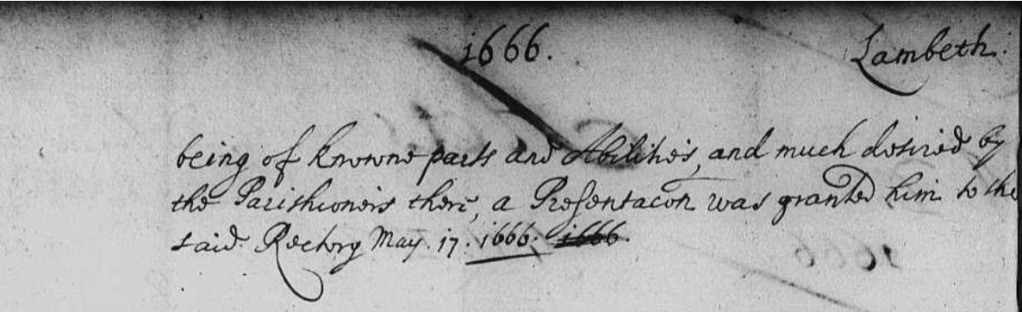 1666. Lambeth.
being of knowne parts and Abilities, and much desired by
the Parishioners there, a Presentacon was granted him to the
said Rectory May. 17. 1666. 1666.